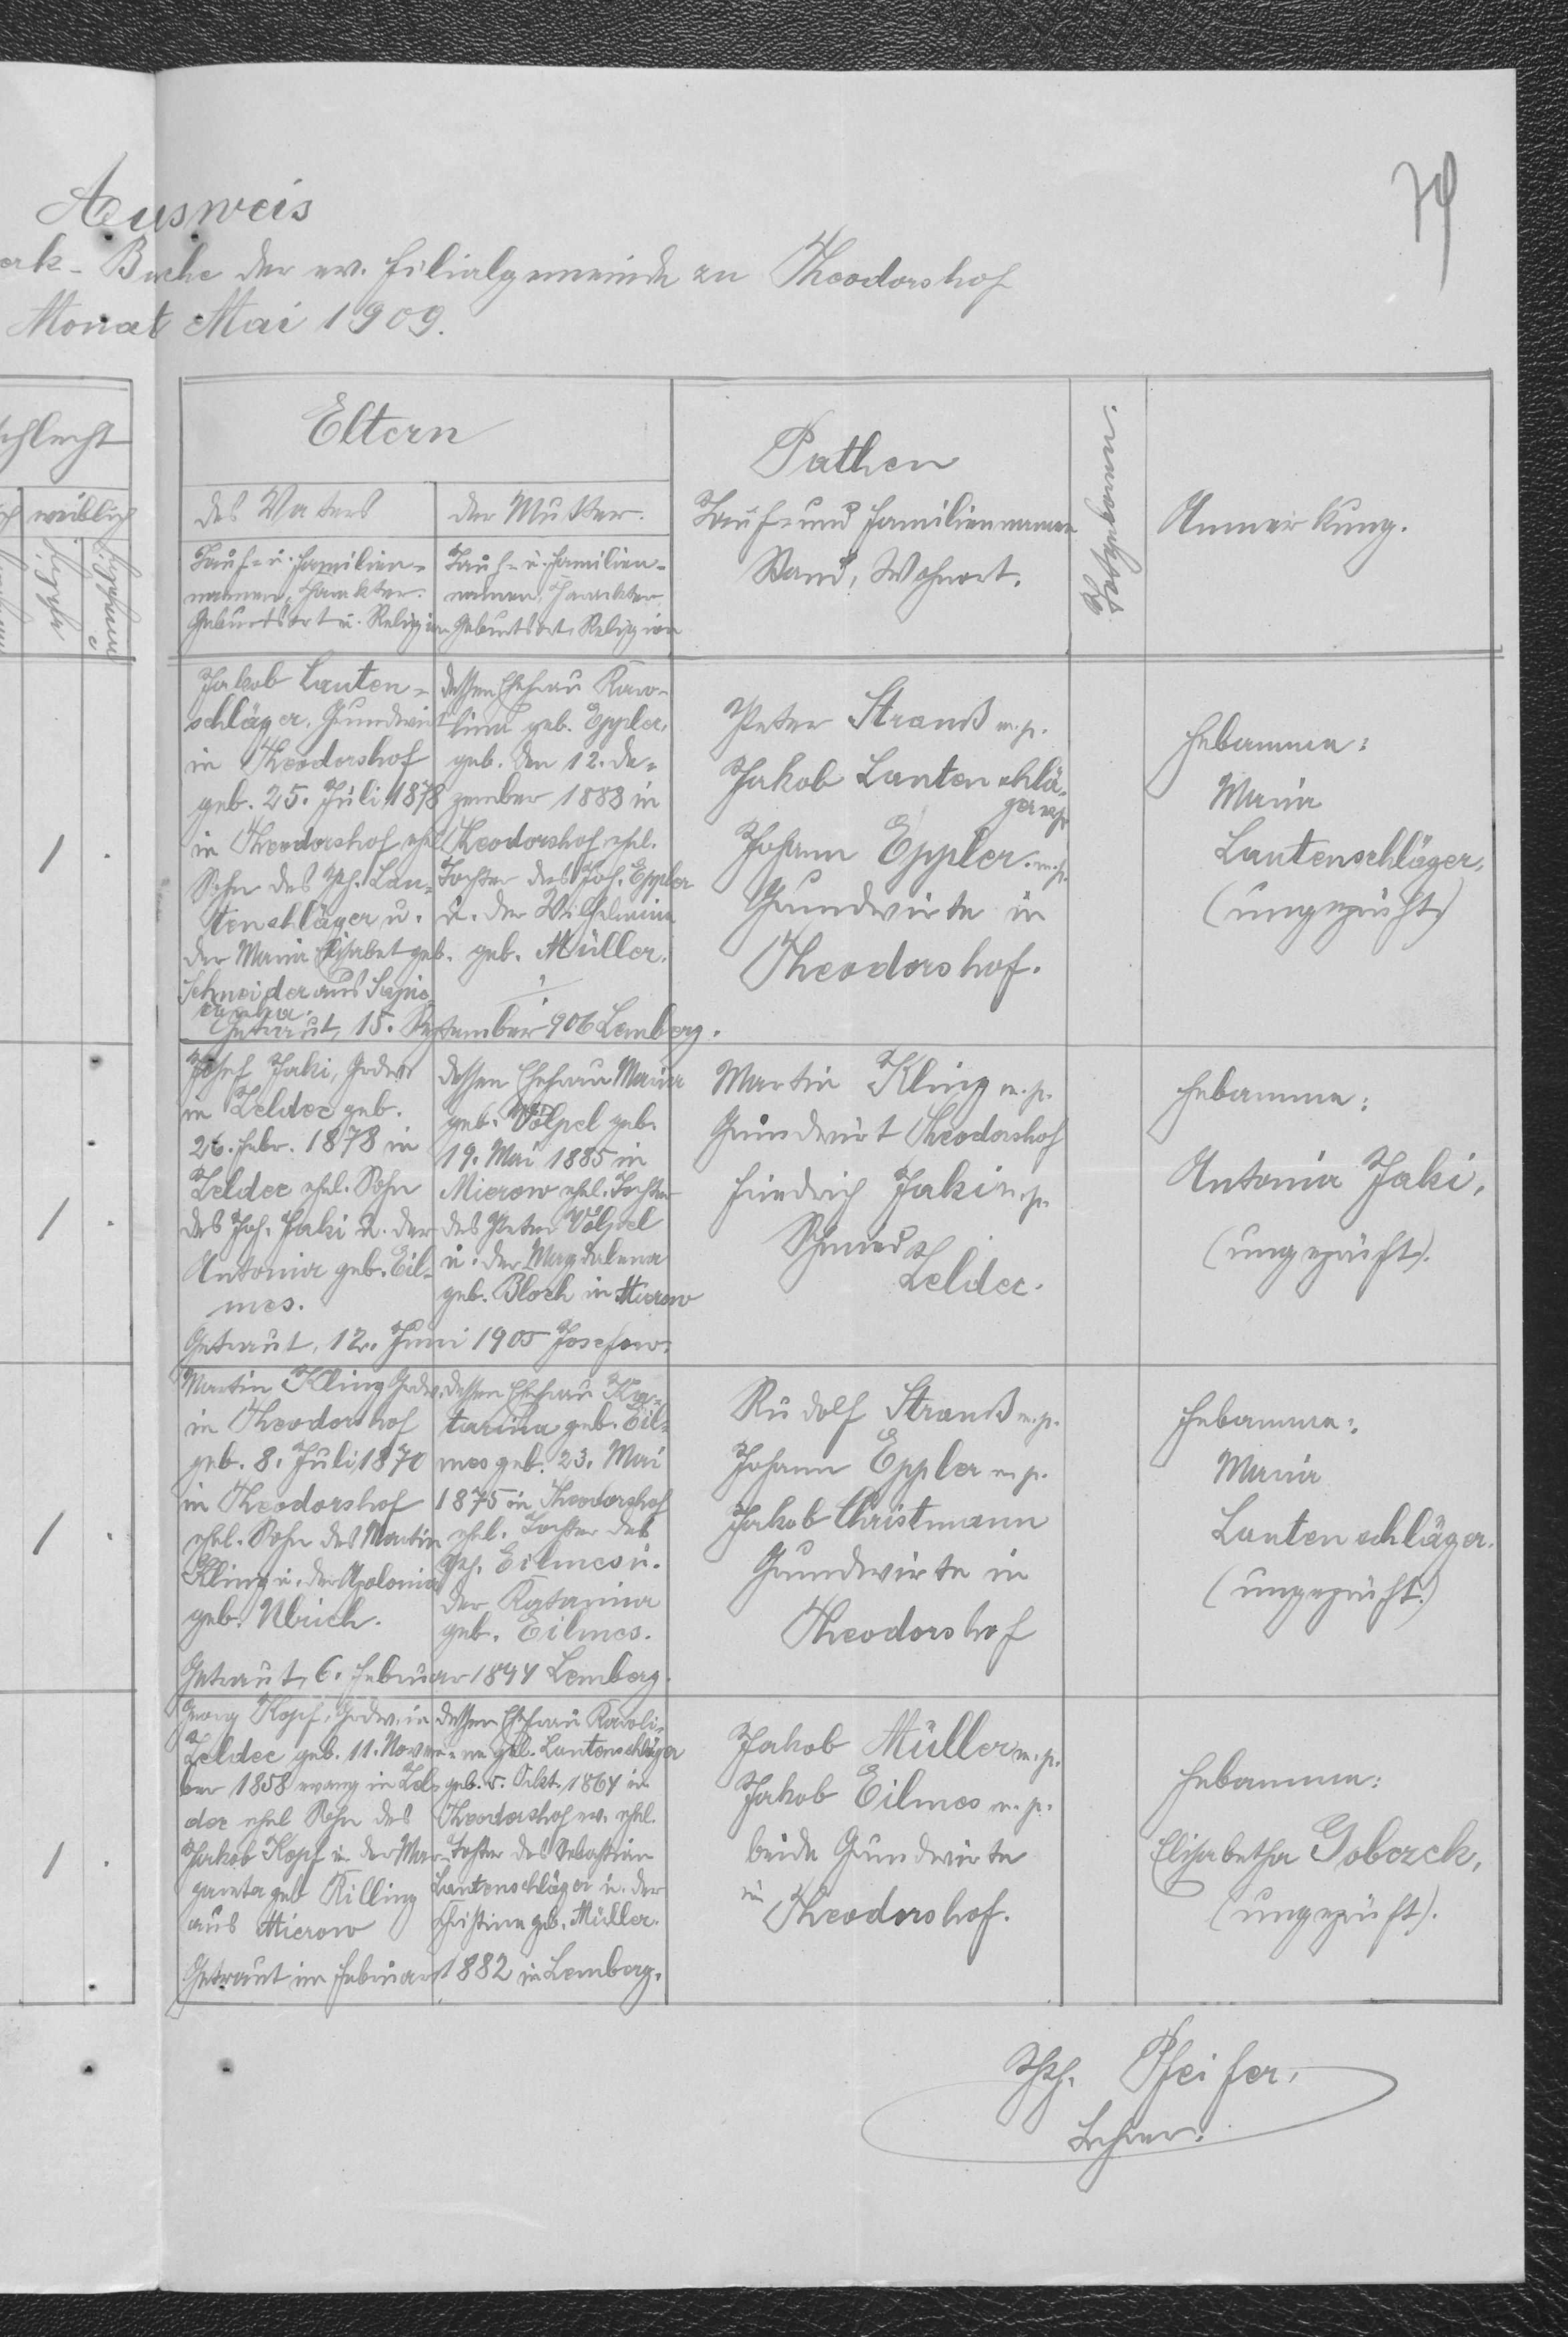 79
Ausweis
Buche der ev. Filialgemeinde zu Theodorshof
Monat Mai 1909.
schlecht
weiblich
Eltern
des Vaters
der Mutter.
Tauf- u. Familien-
namen, Charakter.
Geburtsort u. Religion
Tauf- u. Familien-
namen, Charakter
Geburtsort, Religion
Pathen
Tauf- und Familiennamen
Stand, Wohnort.
Anmerkung.
1
Jakob Lauten-
schläger, Grundwirt
in Theodorshof
geb. 25. Juli 1878
in Theodorshof ehel
Sohn des Joh. Lau-
tenschläger u.
der Maria Elisabet geb.
Schneider aus
dessen Ehefrau Karo-
lina geb. Eppler,
geb. den 12. De-
zember 1883 in
Theodorshof ehel.
Tochter des Joh. Eppler
u. der Wilhelmine
geb. Müller.
Getraut, 15. September 906 Lemberg.
Peter Strauß m. p.
Jakob Lantenschlä-
ger mp
Johann Eppler m. p.
Grundwirte in
Theodorshof.
Hebamme:
Maria
Lautenschläger,
(ungeprüft)
1
Josef Jaki, Grdw
in Zeldec geb.
26. Febr. 1878 in
Zeldec ehel. Sohn
des Joh. Jaki u. der
Antonia geb. Eil-
mes.
dessen Ehefrau Maria
geb. Völpel geb.
19. Mai 1885 in
Mierow ehel. Tochter
des Peter Völpel
u. der Magdalena
geb. Bloch in Mierow
Getraut, 12. Juni 1905 Josefow.
Martin Kling m. p.
Grundwirt Theodorshof
Friedrich Jaki m. p.
Schmied
Zeldec.
Hebamme:
Antonia Jaki,
(ungeprüft).
1
Martin Kling Grdw.
in Theodorshof
geb. 8. Juli 1870
in Theodorshof
ehel. Sohn des Martin
Kling u. der Apolonia
geb. Ulrich.
dessen Ehefrau Ka-
tarina geb. Eil-
mes geb. 23. Mai
1875 in Theodorshof
ehel. Tochter des
Joh. Eilmes u.
der Katarina
geb. Eilmes.
Getraut, 6. Februar 1894 Lemberg.
Rudolf Strauß m. p.
Johann Eppler m. p.
Jakob Christmann
Grundwirte in
Theodorshof
Hebamme:
Maria
Lautenschläger.
(ungeprüft.)
1
Georg Kopf, Grdw. in
Zeldec geb. 11. Novem-
ber 1858 evang in Zel-
dec ehel Sohn des
Jakob Kopf u der Mar-
gareta geb Killing
aus Mierow
dessen Ehefrau Karoli-
ne geb. Lantenschläger
geb. 5. Okt. 1864 in
Theodorshof ev. ehel.
Tochter des Sebastian
Lantenschläger u. der
Christine geb. Müller.
Getraut im Februar 1882 in Lemberg.
Jakob Müller m. p.
Jakob Eilmes m. p.
beide Grundwirte
in Theodorshof.
Hebamme:
Elisabetha Goberzek,
(ungeprüft).
Pfeifer,
Lehrer.